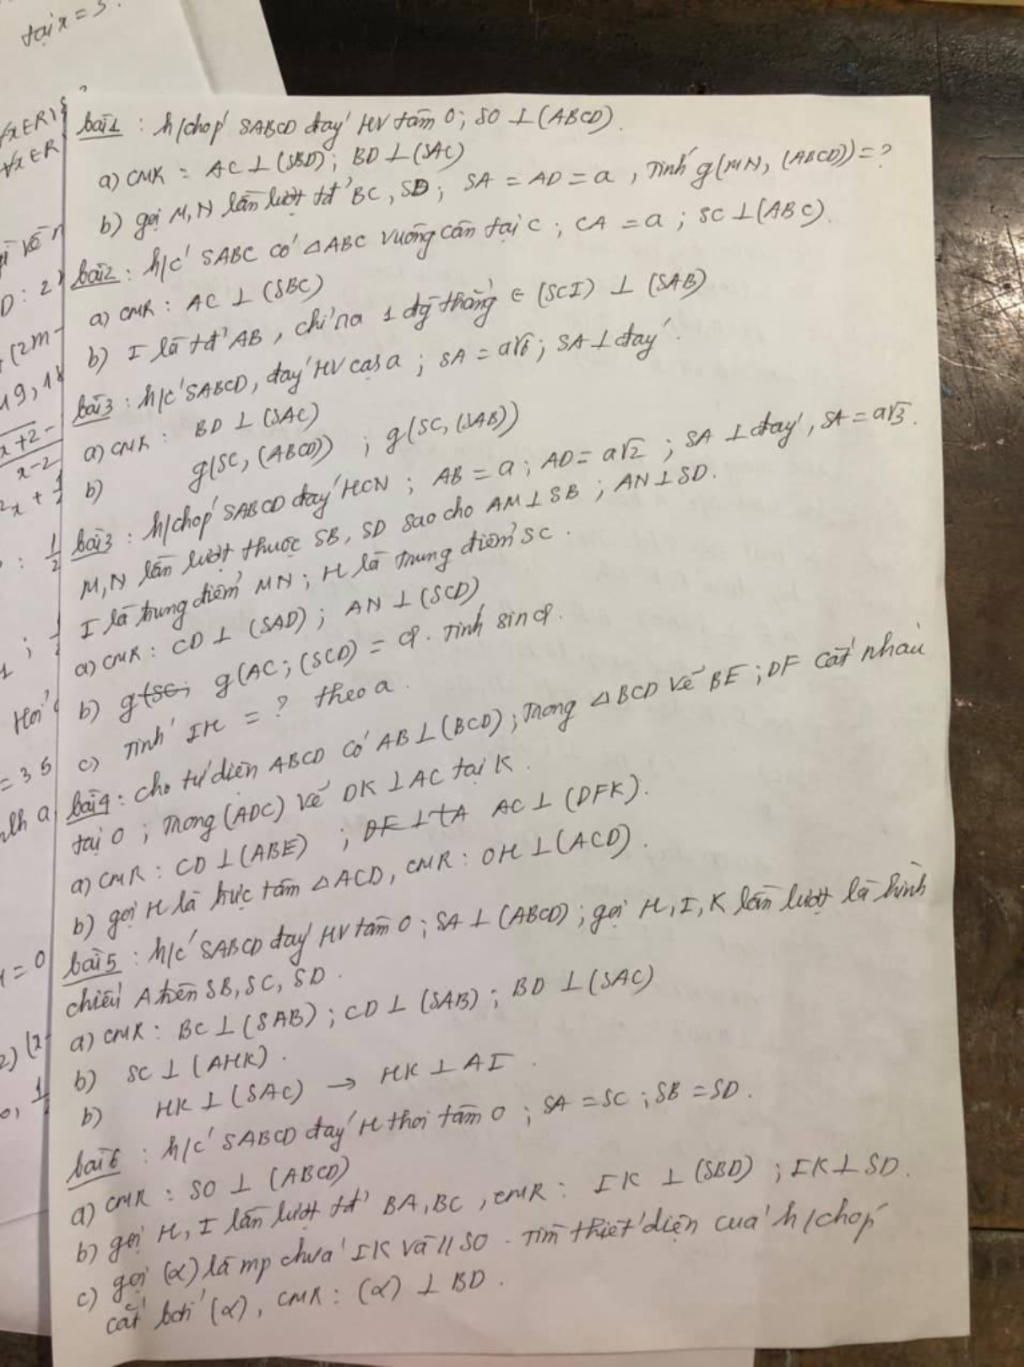 tại x = 3.
∀x∈R
∀x∈R
bài 1 : h/chóp SABCD đáy HV tâm O; SO ⊥ (ABCD).
a) CMR : AC ⊥ (SBD); BD ⊥ (SAC)
b) gọi M, N lần lượt tđ BC, SD; SA = AD = a, Tính g(MN, (ABCD)) = ?
bài 2 : h/c SABC có ΔABC vuông cân tại C; CA = a; SC ⊥ (ABC).
a) CMR : AC ⊥ (SBC)
b) I là tđ AB, chỉ ra 1 đg thẳng ∈ (SCI) ⊥ (SAB)
bài 3 : h/c SABCD, đáy HV cạh a; SA = a√6; SA ⊥ đáy.
a) CMR : BD ⊥ (SAC)
b) g(SC, (ABCD)) ; g(SC, (SAB))
bài 3 : h/chóp SABCD đáy HCN; AB = a; AD = a√2; SA ⊥ đáy, SA = a√3.
M, N lần lượt thuộc SB, SD sao cho AM ⊥ SB; AN ⊥ SD.
I là trung điểm MN; H là trung điểm SC.
a) CMR : CD ⊥ (SAD); AN ⊥ (SCD)
b) g(SC; g(AC; (SCD) = φ. Tính sin φ.
c) Tính IH = ? theo a.
bài 4 : cho tứ diện ABCD có AB ⊥ (BCD); Trong ΔBCD vẽ BE; DF cắt nhau
tại O; Trong (ADC) vẽ DK ⊥ AC tại K.
a) CMR : CD ⊥ (ABE) ; DF ⊥ tA AC ⊥ (DFK).
b) gọi H là trực tâm ΔACD, CMR : OH ⊥ (ACD).
bài 5 : h/c SABCD đáy HV tâm O; SA ⊥ (ABCD); gọi H, I, K lần lượt là hình
chiếu A trên SB, SC, SD.
a) CMR : BC ⊥ (SAB); CD ⊥ (SAB); BD ⊥ (SAC)
b) SC ⊥ (AHK).
b) HK ⊥ (SAC) → HK ⊥ AI.
bài 6 : h/c SABCD đáy H thoi tâm O; SA = SC; SB = SD.
a) CMR : SO ⊥ (ABCD)
b) gọi H, I lần lượt tđ BA, BC, CMR : IK ⊥ (SBD); IK ⊥ SD.
c) gọi (α) là mp chứa IK và // SO. Tìm thiết diện của h/chóp
cắt bởi (α), CMR : (α) ⊥ BD.